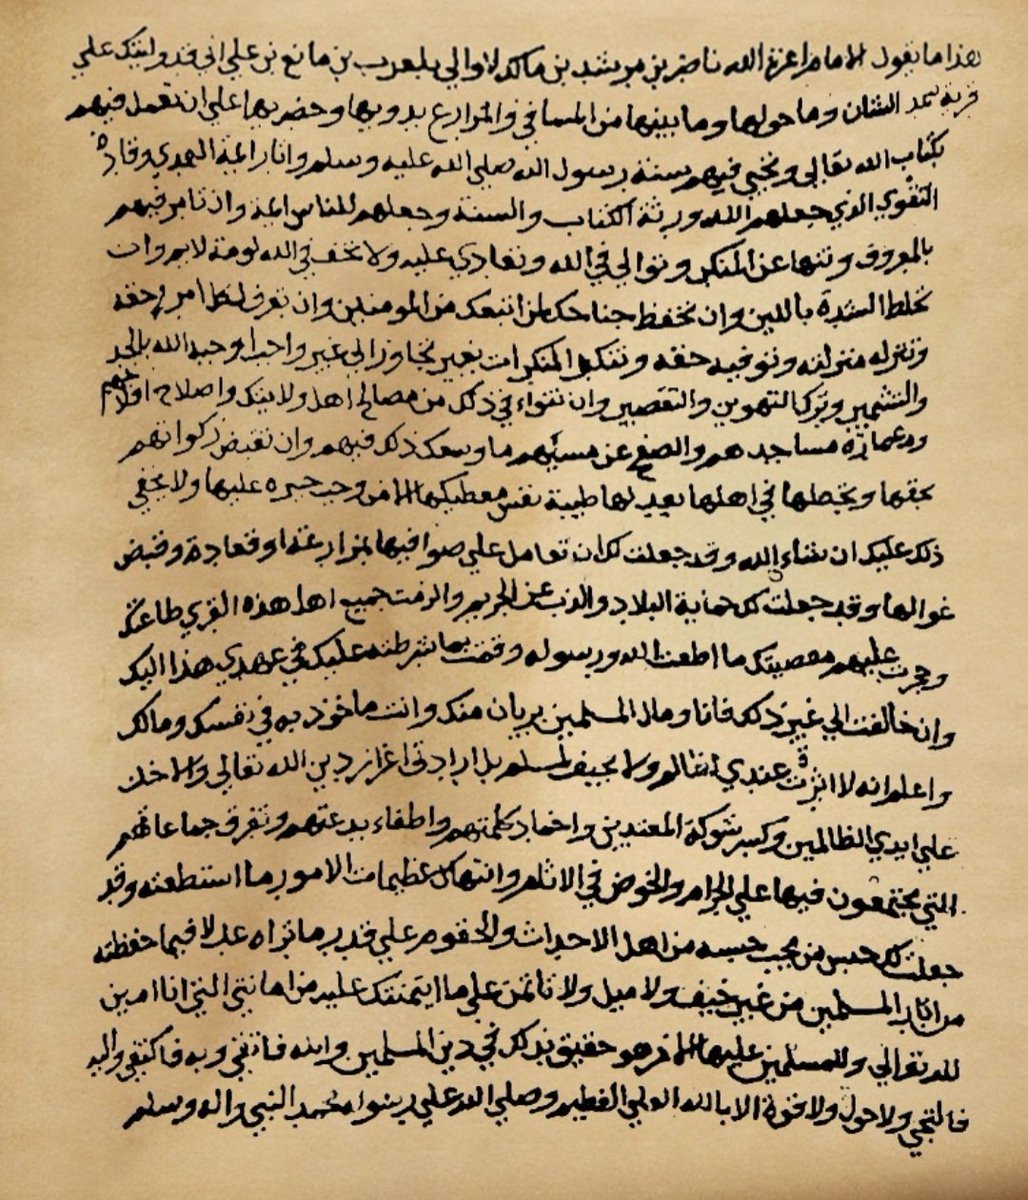 هذا ما يقول الامام اعزه الله ناصر بن مرشد بن مالك لاوالي بلعرب بن مانع بن علي اني قد وليتك علي
قرية سمد الشان وما حولها وما بينها من المسافي والمزارع بدويها وحضريها علي ان تعمل فيهم
بكتاب الله تعالي وتحيي فيهم سنة رسول الله صلي الله عليه وسلم واثار ايمة الهدي وقادة
التقوي الذي جعلهم الله ورثة الكتاب والسنة وجعلهم للناس ايمة وان تامر فيهم
بالمعروف وتنها عن المنكر وتوالي في الله وتعادي عليه ولا تخف في الله لومة لايم وان
تخلط الشدة باللين وان تخفظ جناحك لمن اتبعك من المومنين وان تعرف لكل امرء حقه
وتنزله منزلته وتوفيه حقه وتنكر المنكرات بغير تجاوز الي غير واجب اوجبه الله بالجد
والتشمير وترك التهوين والتقصير وان تتواء في ذلك من مصالح اهل ولايتك واصلاح افلاجهم
وعمارة مساجدهم والصفح عن مسيئهم ما وسعك ذلك فيهم وان تقبض زكواتهم
بحقها وتجعلها في اهلها بعد لها طيبة نفس معطيكها الا من وجب جبره عليها ولا يخفي
ذلك عليك ان شاء الله وقد جعلت لك ان تعامل علي صوافيها بمزارعة او قعادة وقبض
غوالها وقد جعلت لك حماية البلاد والذب عن الحريم والزمت جميع اهل هذه القري طاعتك
وحجرت عليهم معصيتك ما اطعت الله ورسوله وقمت بما شرطته عليك في عهدي هذا اليك
وان خالفت الي غير ذلك فانا ومال المسلمين بريان منك وانت ماخوذ به في نفسك ومالك
واعلم انه لا اثرة عندي لظالم ولا لحيف المسلم بل ارادتي اعزاز دين الله تعالي والاخذ
علي ايدي الظالمين وكسر شوكة المعتدين واخماد كلمتهم واطفاء بدعتهم وتفرق جماعاتهم
التي يجتمعون فيها علي الحرام والخوض في الاثام وانتهاك عظيمات الامور ما استطعته وقد
جعلت لك حبس من يجب حبسه من اهل الاحداث والحقوق علي قدر ما تراه عدلا فيما حفظته
من اثار المسلمين من غير حيف ولا ميل ولا تاتمن علي ما ايتمنتك عليه من امانتي التي انا امين
لله تعالي وللمسلمين عليها الا من هو حقيق بذلك في دين المسلمين والله فاتقي وبه فاكتفي واليه
فالتجي ولا حول ولا قوة الا بالله العلي العظيم وصلي الله علي رسوله محمد النبي واله وسلم